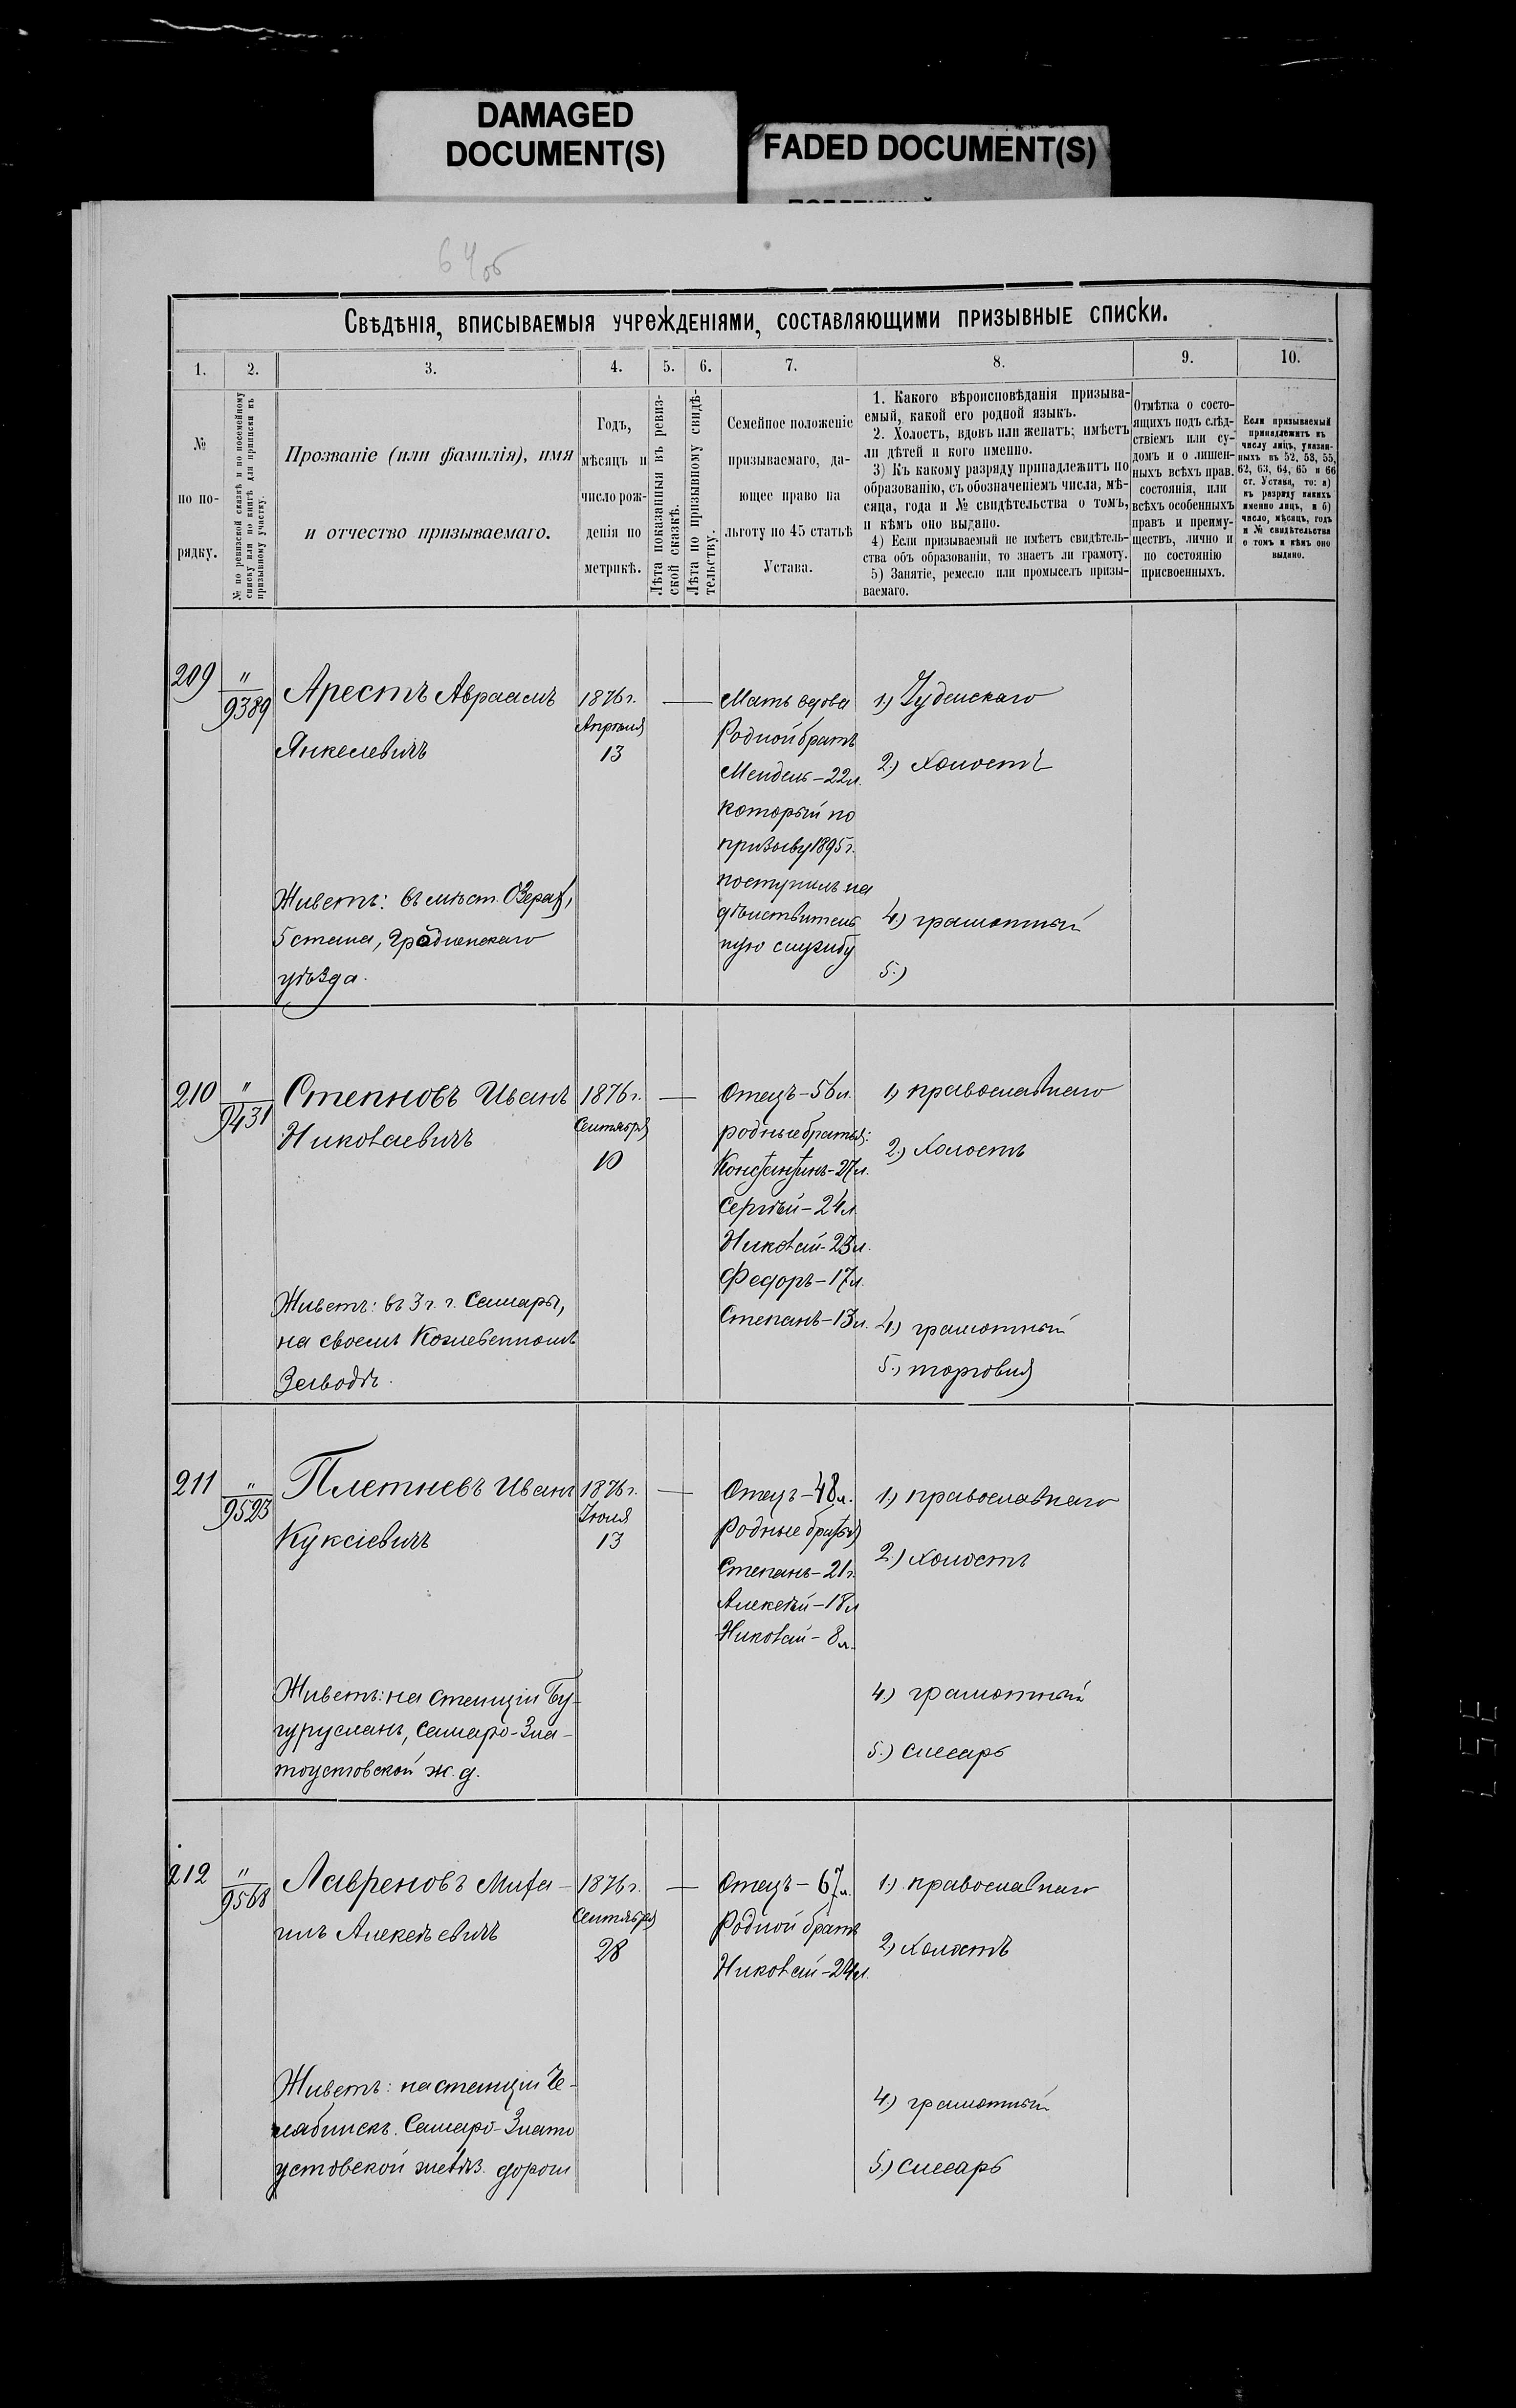 DAMAGED
DOCUMENT(S)
FADED DOCUMENT(S)
64об
Свѣдѣнія, вписываемыя учрежденіями, составляющими призывные списки.
1.
2.
3.
4.
5.
6.
7.
8.
9.
10.
№
по по-
рядку.
№ по ревизской сказкѣ и по посемейному
списку или по книгѣ для приписки къ
призывному участку.
Прозваніе (или фамилія), имя
и отчество призываемаго.
Годъ,
мѣсяцъ и
число рож-
денія по
метрикѣ.
Лѣта показанныя въ ревиз-
ской сказкѣ.
Лѣта по призывному свидѣ-
тельству.
Семейное положеніе
призываемаго, да-
ющее право на
льготу по 45 статьѣ
Устава.
1. Какого вѣроисповѣданія призыва-
емый, какой его родной языкъ.
2. Холостъ, вдовъ или женатъ; имѣетъ
ли дѣтей и кого именно.
3) Къ какому разряду принадлежитъ по
образованію, съ обозначеніемъ числа, мѣ-
сяца, года и № свидѣтельства о томъ,
и кѣмъ оно выдано.
4) Если призываемый не имѣетъ свидѣтель-
ства объ образованіи, то знаетъ ли грамоту.
5) Занятіе, ремесло или промыселъ призы-
ваемаго.
Отмѣтка о состо-
ящихъ подъ слѣд-
ствіемъ или су-
домъ и о лишен-
ныхъ всѣхъ прав.
состоянія, или
всѣхъ особенныхъ
правъ и преиму-
ществъ, лично и
по состоянію
присвоенныхъ.
Если призываемый
принадлежитъ къ
числу лицъ, указан-
ныхъ въ 52, 53, 55,
62, 63, 64, 65 и 66
ст. Устава, то: а)
къ разряду какихъ
именно лицъ, и б)
число, мѣсяцъ, годъ
и № свидѣтельства
о томъ и кѣмъ оно
выдано.
209
"
9389
Арестъ Авраамъ
Янкелевичъ
Живетъ: въ мѣст. Озерах,
5 стана, Гродненскаго
уѣзда.
1876 г.
Апрѣля
13
—
Мать вдова
Родной братъ
Мендель – 22 л.
который по
призыву 1895 г.
поступилъ на
дѣйствитель
ную службу
1.) Іудейскаго
2.) холостъ
4.) грамотный
5.)
210
"
9431
Степновъ Иванъ
Николаевичъ
Живетъ: въ 3 ч. г. Самары,
на своемъ Кожевенномъ
Заводѣ.
1876 г.
Сентября
10
—
Отецъ – 56 л.
родные братья:
Константинъ – 27 л.
Сергѣй – 24 л
Николай – 23 л.
Федоръ – 17 л.
Степанъ – 13 л.
1) православнаго
2.) Холостъ
4.) грамотный
5.) торговля
211
"
9523
Плетневъ Иванъ
Куксіевичъ
Живетъ: на станціи Бу-
гурусланъ, Самаро-Зла-
тоустовской ж. д.
1876 г.
Іюля
13
—
Отецъ – 48 л.
Родные братья
Степанъ – 21 г.
Алексѣй – 18 л
Николай – 8 л.
1.) православнаго
2.) холостъ
4.) грамотный
5.) слесарь
212
"
9568
Лавреновъ Миха-
илъ Алексѣевичъ
Живетъ: на станціи Че-
лябинскъ. Самаро-Злато
устовской желѣз. дороги
1876 г.
Сентября
28
—
Отецъ – 67 л.
Родной братъ
Николай – 24 л.
1.) православнаго
2) холостъ
4.) грамотный
5.) слесарь